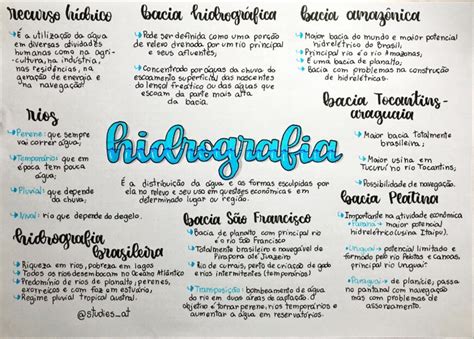 recurso hídrico
É a utilização da água
em diversas atividades
humanas como na agri-
cultura, na indústria,
nas residências, na
geração de energia e
na navegação!
bacia hidrográfica
Pode ser definida como uma porção
de relevo drenada por um rio principal
e seus afluentes;
Concentrado por águas da chuva do
escoamento superficial, das nascentes
do lençol freático ou das águas que
escoam da parte mais alta
da bacia.
bacia amazônica
Maior bacia do mundo e maior potencial
hidrelétrico do Brasil;
Principal rio é o rio Amazonas;
É uma bacia de planalto;
Bacia com problemas na construção
de hidrelétricas.
rios
Perene: que sempre
vai correr água;
Temporário: que em
época tem pouca
água;
Pluvial: que depende
da chuva;
Nival: rio que depende do degelo.
hidrografia
É a distribuição da água e as formas esculpidas por
ela no relevo e seu uso em questões econômicas em
determinado lugar ou região.
bacia Tocantins-
araguaia
Maior bacia totalmente
brasileira;
Maior usina em
Tucuruí no rio Tocantins;
Possibilidade de navegação.
hidrografia
brasileira
Riqueza em rios, pobreza em lagos
Todos os rios desembocam no Oceano Atlântico
Predomínio de rios de planalto; perenes,
exorreicos e com foz em estuário;
Regime pluvial tropical austral.
@studies_at
bacia São Francisco
Bacia de planalto com principal rio
é o rio São Francisco
Totalmente brasileiro e navegável de
Pirapora até Juazeiro
Rio de grande importância criação de gado
e rios intermitentes (temporários)
Transposição: bombeamento da água
do rio em duas áreas de captação. O
objetivo é tornar perene, rios temporários e
aumentar a água em reservatórios.
bacia Platina
Importante na atividade econômica
Paraná → maior potencial
hidrelétrico (usina Itaipu).
Uruguai → potencial limitado e
formado pelo rio Pelotas e Canoas
principal rio Uruguai.
Paraguai → de planície, passa
no pantanal mas com
problemas de
assoreamento.